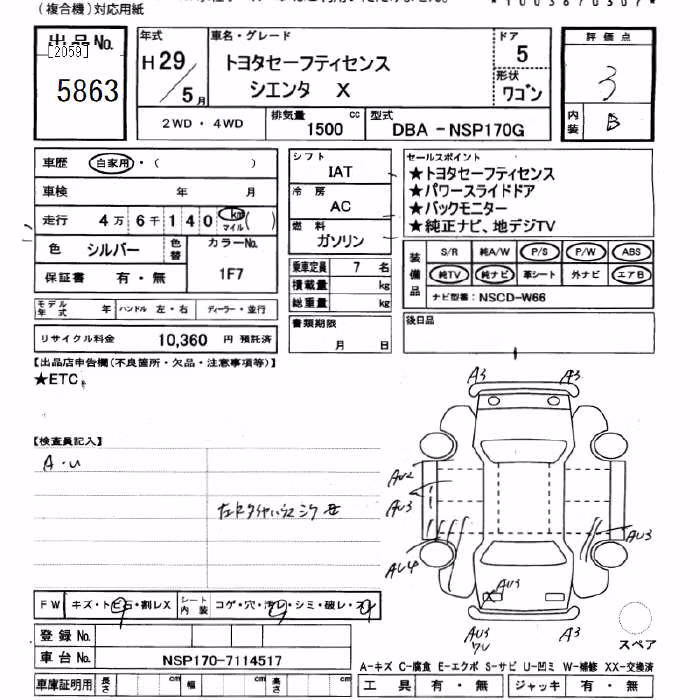 (複合機)対応用紙
出品No.
[2059]
5863
年式
H29/5月
車名・グレード
トヨタセーフティセンス
シエンタ X
ドア
5
形状
ワゴン
評価点
3
内装
B
2WD・4WD
排気量
1500 cc
型式
DBA-NSP170G
車歴 自家用・( )
車検 年 月
走行 4万6千140 km マイル ( )
色 シルバー 色替
カラーNo.
1F7
保証書 有・無
モデル年式 年 ハンドル 左・右 ディーラー・並行
リサイクル料金 10,360 円 預託済
シフト
IAT
冷房
AC
燃料
ガソリン
乗車定員 7 名
積載量 kg
総重量 kg
書類期限
月 日
セールスポイント
★トヨタセーフティセンス
★パワースライドドア
★バックモニター
★純正ナビ、地デジTV
装備品
S/R 純A/W P/S P/W ABS
純TV 純ナビ 革シート 外ナビ エアB
ナビ型番:NSCD-W66
後日品
【出品店申告欄(不良箇所・欠品・注意事項等)】
★ETC
【検査員記入】
A・U
A3 A3
AU2
AU3
AU4
AU3
AU3
AU3
A3
スペア
FW キズ・トビ石・割レX シート内装 コゲ・穴・汚レ・シミ・破レ・スレ
登録No.
車台No. NSP170-7114517
車庫証明用 長さ cm 幅 cm 高さ cm
A-キズ C-腐食 E-エクボ S-サビ U-凹ミ W-補修 XX-交換済
工具 有・無 ジャッキ 有・無